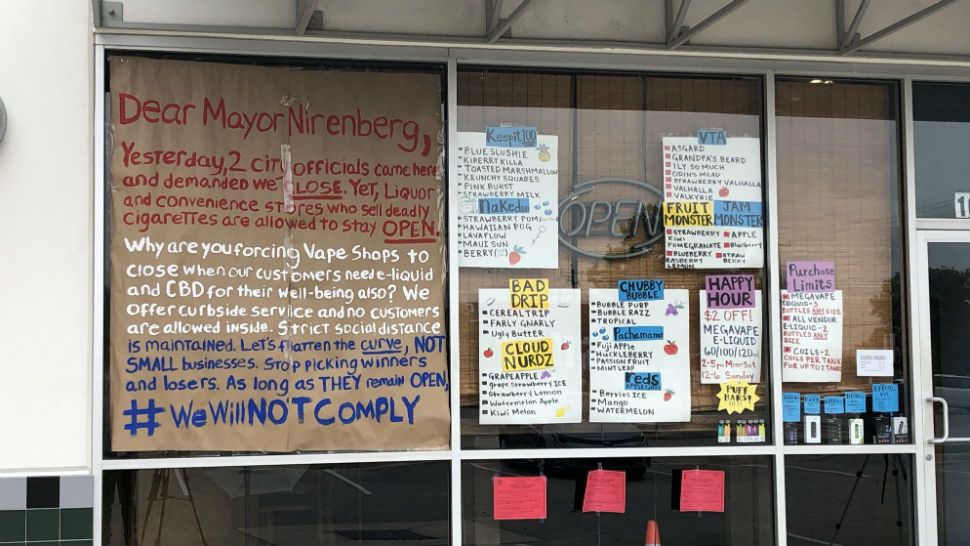 Dear Mayor Nirenberg,
Yesterday, 2 city officials came here
and demanded we CLOSE. Yet, Liquor
and convenience stores who sell deadly
cigarettes are allowed to stay OPEN.
Why are you forcing Vape Shops to
close when our customers need e-liquid
and CBD for their well-being also? We
offer curbside service and no customers
are allowed inside. Strict social distance
is maintained. Let's flatten the curve, NOT
SMALL businesses. Stop picking winners
and losers. As long as THEY remain OPEN,
#WeWillNOTCOMPLY
Keepit100
BLUE SLUSHIE
KIBERRY KILLA
TOASTED MARSHMALLOW
KRUNCHY SQUARES
PINK BURST
STRAWBERRY MILK
Naked100
STRAWBERRY POM
HAWAIIAN POG
LAVAFLOW
MAUI SUN
BERRY
OPEN
VTA
ASGARD
GRANDPA'S BEARD
ILY SO MUCH
ODIN'S MEAD
STRAWBERRY VALHALLA
VALHALLA
VALKYRIE
FRUIT MONSTER
STRAWBERRY
KIWI
POMEGRANATE
BLUEBERRY
RASBERRY
LEMON
JAM MONSTER
APPLE
Blueberry
STRAW
BERRY
BAD
DRIP
CEREAL TRIP
FARLY GNARLY
Ugly Butter
CLOUD
NURDZ
GRAPE APPLE
grape Strawberry ICE
Strawberry Lemon
Watermelon Apple
Kiwi Melon
CHUBBY
BUBBLE
BUBBLE PURP
BUBBLE RAZZ
TROPICAL
Pachamama
Fuji Apple
HUCKLEBERRY
PASSION FRUIT
MINT LEAF
reds
Berries ICE
Mango
WATERMELON
HAPPY
HOUR
$2 OFF!
MEGAVAPE
E-LIQUID
60/100/120
2-5pm Mon-Sat
12-6 Sunday
PUFF
BARS!
Purchase
Limits
MEGAVAPE
ELIQUID-3
BOTTLES ANY SIZE
ALL VENDOR
E-LIQUID-2
BOTTLES ANY
SIZE
COILS-2
PER TANK
FOR UP TO 2 TANKS